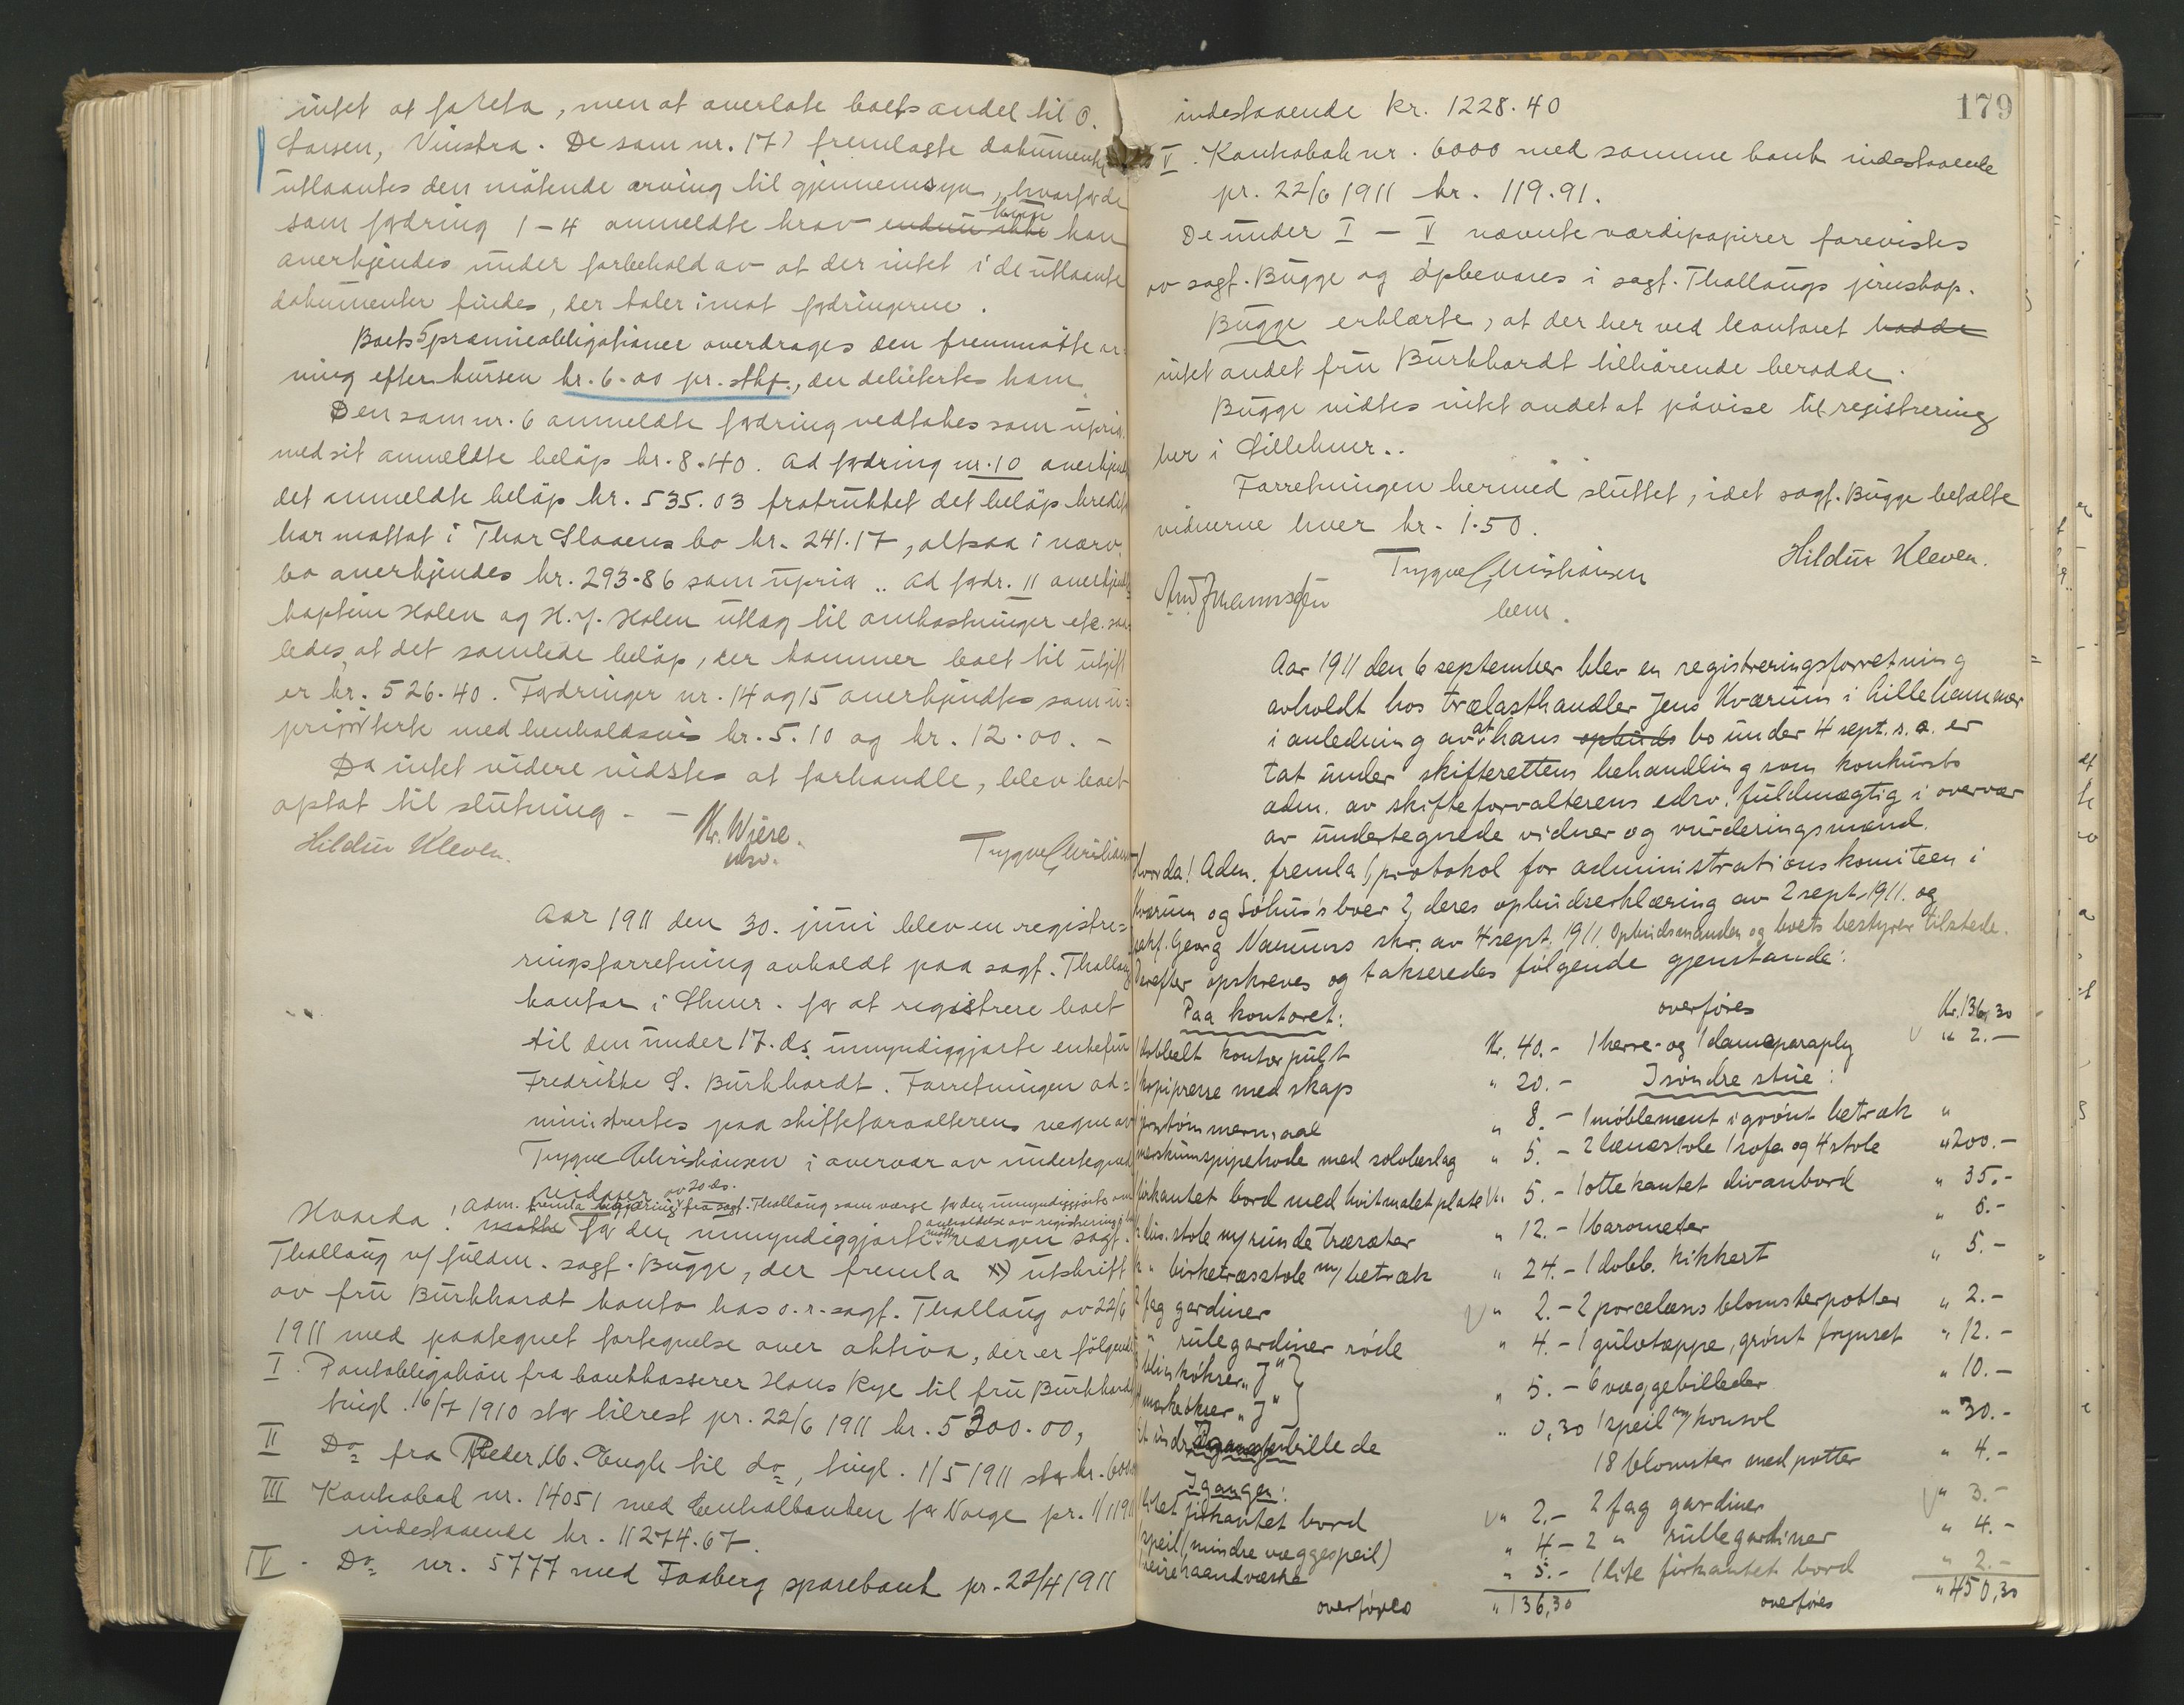 intet at foreta, men at overlate boets andel til O.
Larsen, Vinstra. De som nr. 17) fremlagte dokumenter
utlaantes den møtende arving til gjennemsyn, hvorfor de
som fordring 1-4 anmeldte krav endnu ikke kun kan
anerkjendes under forbehold av at der intet i de utlaante
dokumenter findes, der taler imot fordringerne.
Boets 5 præmieobligationer overdrages den fremmøtte ar-
ning efter kursen kr. 6.00 pr. stk., der debitertes ham.
Den som nr. 6 anmeldte fordring vedtokes som uprio.
med sit anmeldte beløp kr. 8.40. Ad fordring nr. 10 anerkjend
det anmeldte beløp kr. 535.03 fratrukket det beløp kredit
har mottat i Thor Slaaens bo kr. 241.17, altsaa i nærv.
bo anerkjendes kr. 293.86 som uprio.. Ad fordr. 11 anerkjend
kaptein Holen og H. J. Holen utlæg til omkostninger etc. saa-
ledes, at det samlede beløp, der kommer boet til utgift
er kr. 526.40. Fordringer nr. 14 og 15 anerkjendtes som u-
prioriterte med henholdsvis kr. 5.10 og kr. 12.00. -
Da intet videre vidstes at forhandle, blev boet
optat til slutning. -
Kr. Wiese.
edsv.
Hildur Kleven.
Trygve Christiansen
Aar 1911 den 30. juni blev en registre-
ringsforretning avholdt paa sagf. Thallaug
kontor i Lhmr. for at registrere boet
til den under 17. ds. umyndiggjorte enkefru
Fredrikke S. Burkhardt. Forretningen ad-
ministrertes paa skifteforvalterens vegne av
Trygve Christiansen i overvær av undertegnede
vidner av 20 ds.
Hvorda! Adm. fremla begjæring fra sagf. Thallaug som værge for den umyndiggjorte om
avholdelse av registrering
møtte for den umyndiggjorte møtte værgen sagf.
Thallaug v/ fuldm. sagf. Bugge, der fremla x) utskrift
av fru Burkhardt konto hos o.r. sagf. Thallaug av 22/6
1911 med paategnet fortegnelse over aktiva, der er følgende
I. Pantobligation fra bankkasserer Hans Rye til fru Burkhardt
tingl. 16/7 1910 stor tilrest pr. 22/6 1911 kr. 5300.00,
II Do fra Peder M. Engh til do, tingl. 1/5 1911 stor kr. 6000
III Kontrabok nr. 14051 med Centralbanken for Norge pr. 1/1 1911
indestaaende kr. 11274.67.
IV. Do nr. 5777 med Faaberg sparebank pr. 22/4 1911
179
indestaaende kr. 1228.40
V. Kontrabok nr. 6000 med samme bank indestaaende
pr. 22/6 1911 kr. 119.91.
De under I - V nævnte værdipapirer forevistes
av sagf. Bugge og opbevares i sagf. Thallaugs jernskap.
Bugge erklærte, at der her ved kontoret hadde
intet andet fru Burkhardt tilhørende berodde.
Bugge vidtes intet andet at påvise til registrering
her i Lillehmr..
Forretningen hermed sluttet, idet sagf. Bugge betalte
vidnerne hver kr. 1.50.
Trygve Christiansen
bem.
Hildur Kleven.
Aar 1911 den 6 september blev en registreringsforretning
avholdt hos trælasthandler Jens Kværum i Lillehammer
i anledning av at hans opbuds bo under 4 sept. s. a. er
tat under skifterettens behandling som konkursbo
adm. av skifteforvalterens edsv. fuldmægtig i overvær
av undertegnede vidner og vurderingsmænd.
Hvorda! Adm. fremla 1, protokol for administrationskomiteen i
Kværum og Sølhus's boer 2, deres opbudserklæring av 2 sept. 1911. og
sakf. Georg Nannus skr. av 4 sept. 1911. Opbudsmanden og boets bestyrer tilstede.
Derefter opskreves og takseredes følgende gjenstande:
Paa kontoret:
1 dobbelt kontorpult Kr. 40.-
1 kopipresse med skap " 20.-
jerntømmermaal " 8.-
merskumspipehode med sølvbeslag " 5.-
firkantet bord med hvitmalet plate " 5.-
stole m/ runde træsæter " 12.-
" birketræsstole m/ betræk " 24.-
2 fag gardiner " 2.-
" rullegardiner røde " 4.-
blinkøkser " J "
merkeøkser " J " " 5.-
billede " 0,30
I gangen:
litet firkantet bord " 2.-
speil (mindre væggespeil) " 4.-
reisehaandvæske " 5.-
overføres " 136,30
overføres Kr. 136,30
1 herre- og 1 dameparaply " 2.-
I søndre stue:
1 møblement i grønt betræk "
2 lænestole 1 sofa og 4 stole " 200.-
1 ottekantet divanbord " 35.-
1 barometer " 6.-
1 dobb. kikkert " 5.-
2 porcelæns blomsterpotter " 2.-
1 gulvtæppe, grønt frynset " 12.-
6 væggebilleder " 10.-
1 speil m/ konsol " 30.-
18 blomster med potter " 4.-
2 fag gardiner " 3.-
2 " rullegardiner " 4.-
1 lite firkantet bord " 2.-
overføres " 450,30